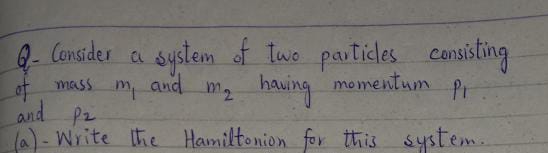 Q- Consider a system of two particles consisting
of mass m₁ and m₂ having momentum p₁
and p₂
(a)- Write the Hamiltonion for this system.